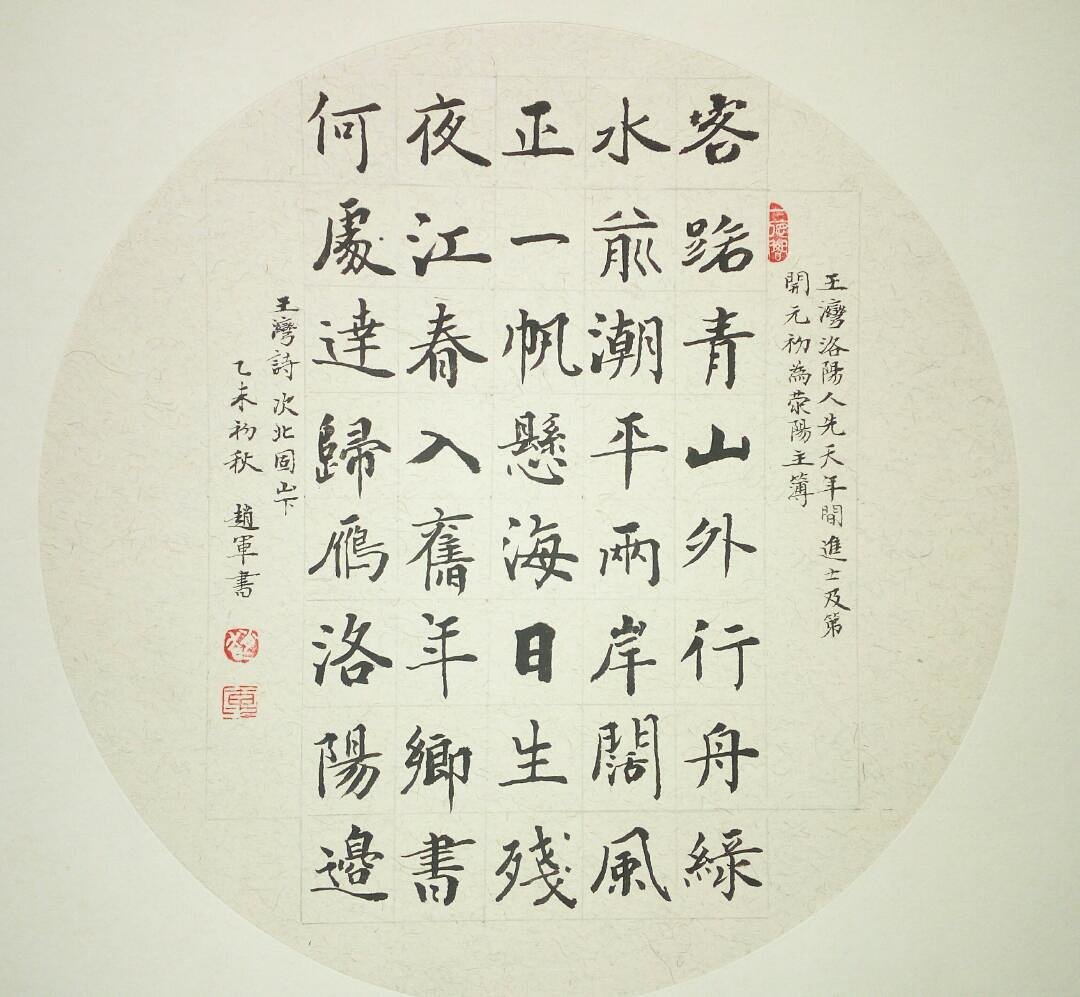 王灣洛陽人先天年間進士及第
開元初為滎陽主簿
客路青山外行舟綠
水前潮平兩岸闊風
正一帆懸海日生殘
夜江春入舊年鄉書
何處達歸鴈洛陽邊
王灣詩次北固山下
乙未初秋 趙軍書